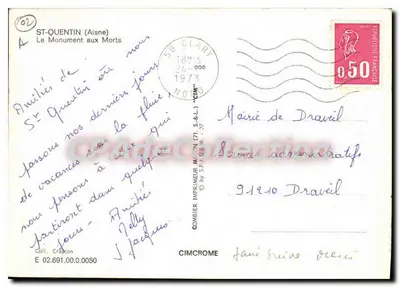 02
A
ST-QUENTIN (Aisne)
Le Monument aux Morts
59 CLARY
1973
NORD
REPUBLIQUE FRANCAISE
0,50
Amitiés de
St Quentin où nous
passons nos derniers jours
de vacances sous la pluie
nous pensons à ceux qui
partiront dans quelques
jours - Amitiés
Nelly
Jacques
Mairie de Draveil
Services administratifs
91210 Draveil
COMBIER IMPRIMEUR MACON (71, S.-&-L.) "CIM"
Coll. 
E 02.691.00.0.0050
CIMCROME